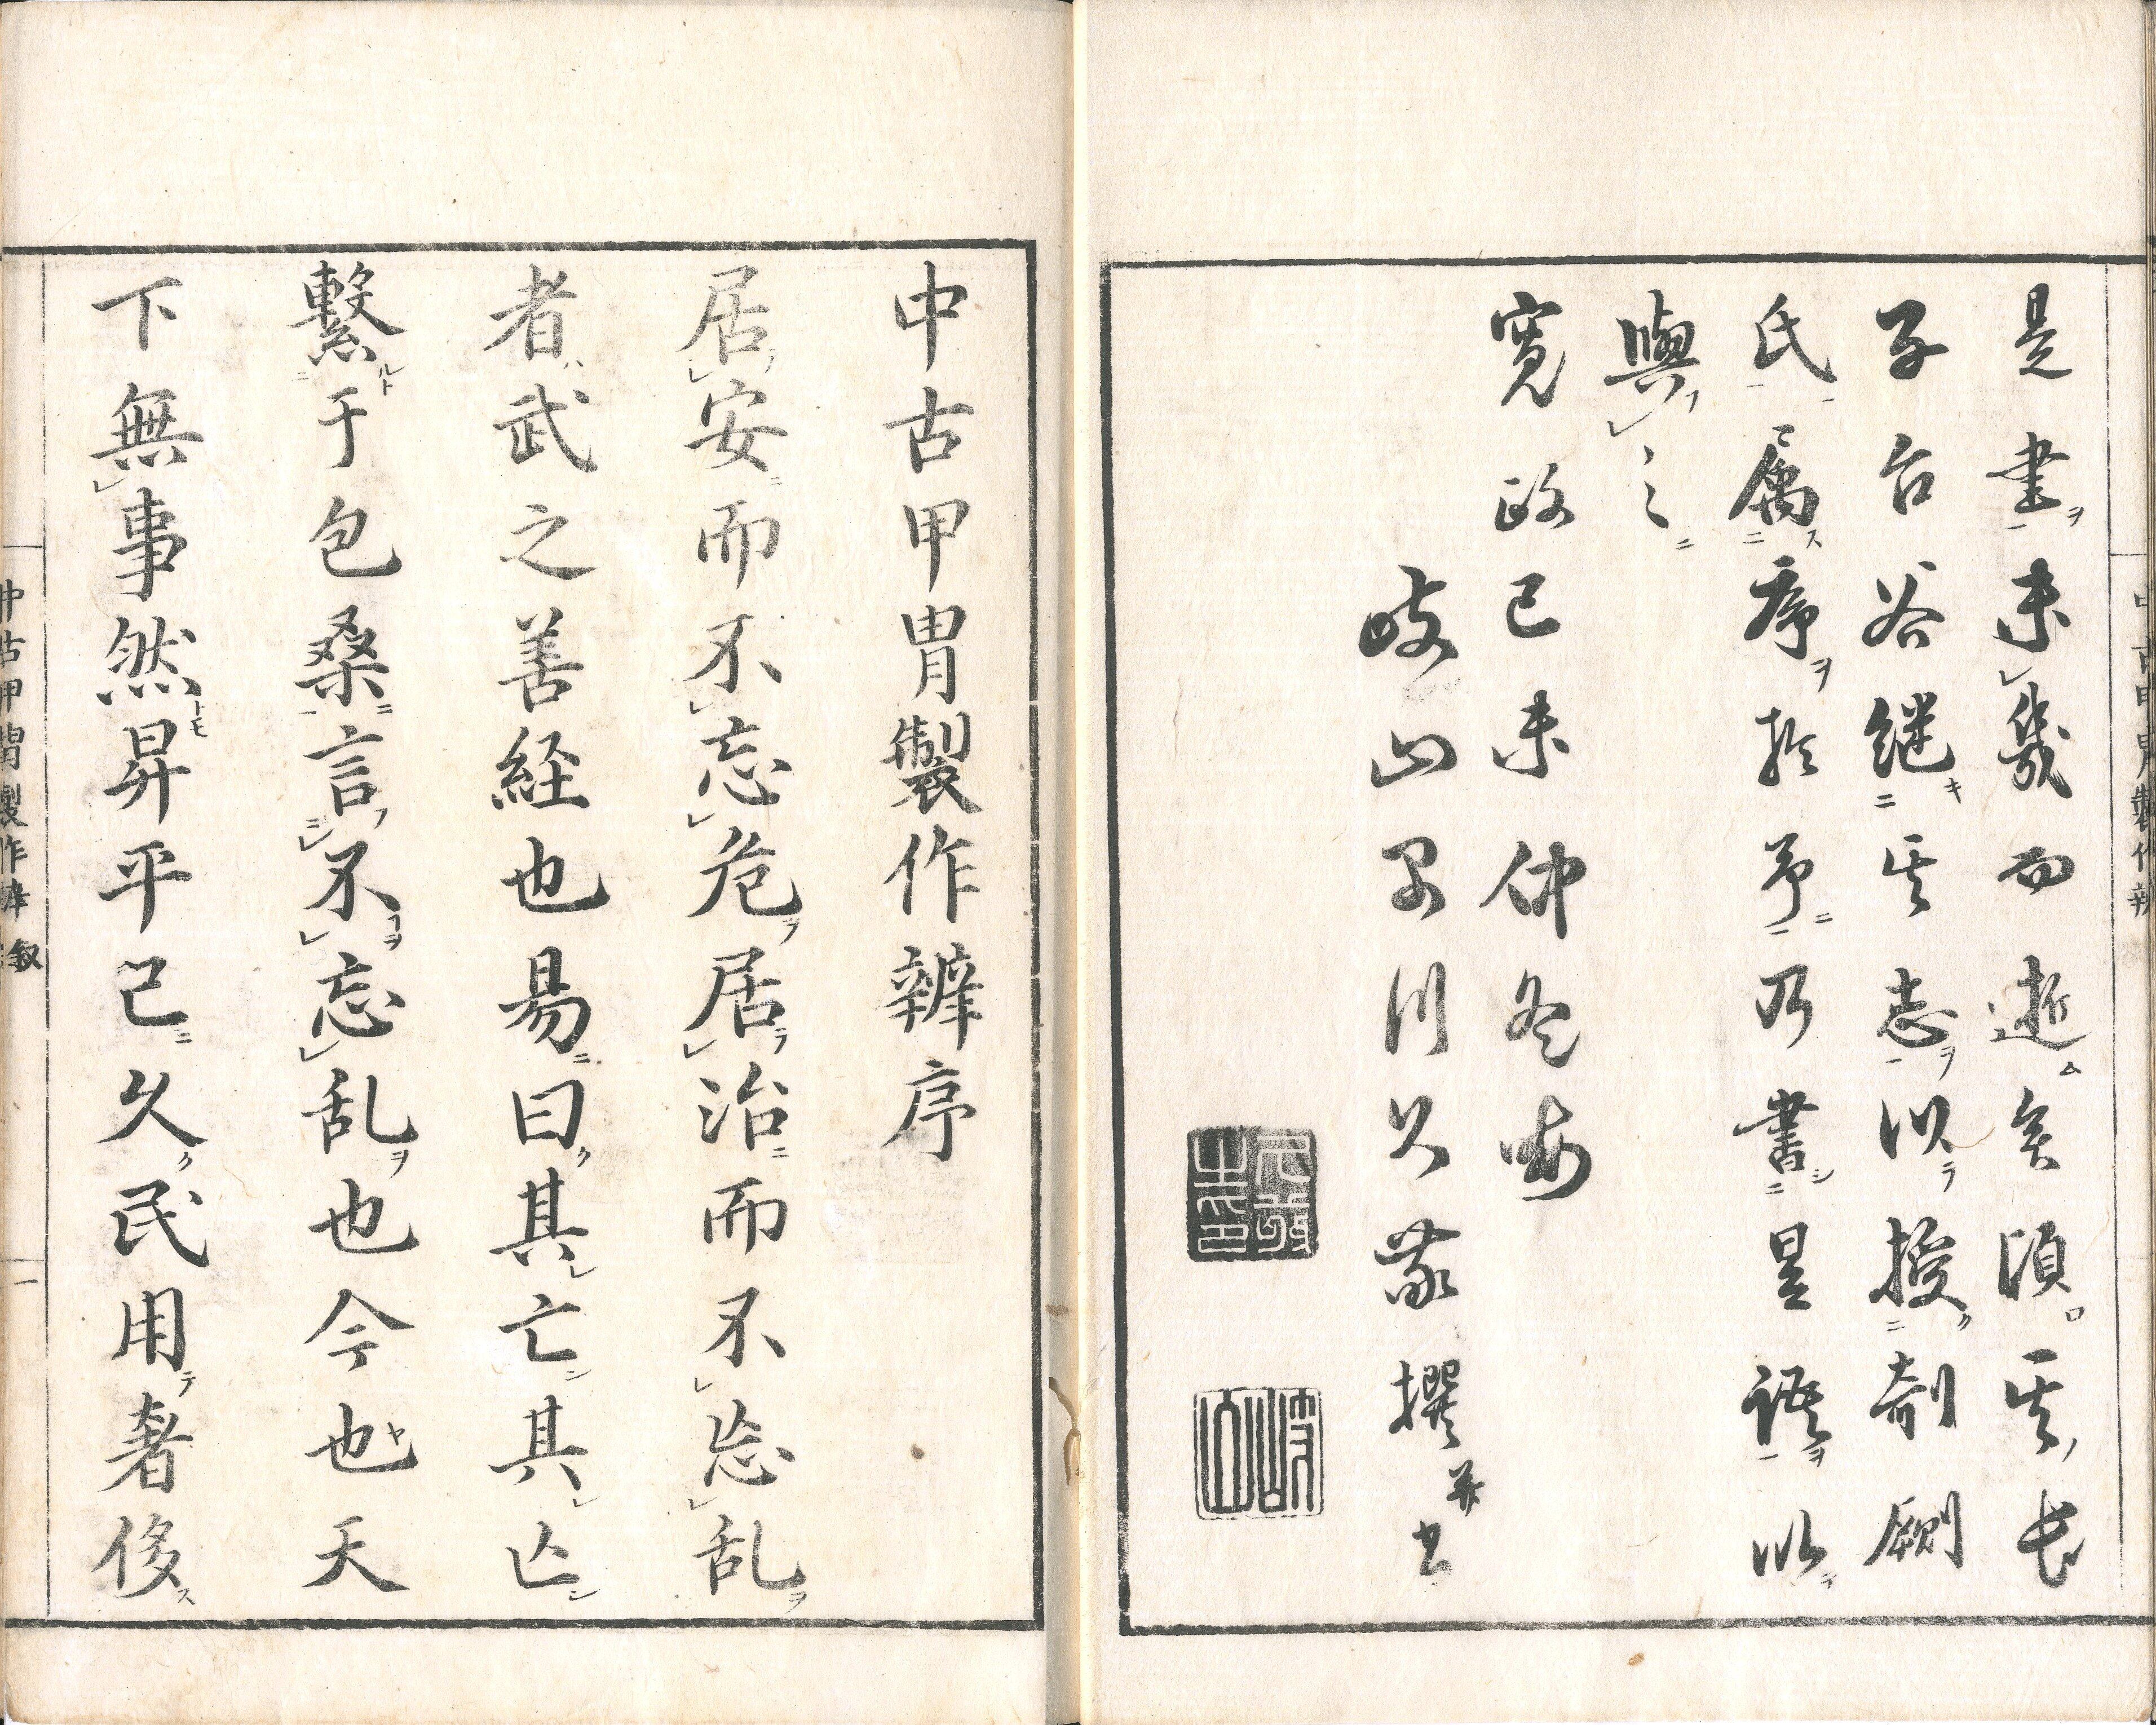 是書未幾而逝矣頃其長
子台谷継其志以授剞劂
氏属序於予乃書是語以
與之
寛政己未仲冬晦
岐山早川公敬撰并書
中古甲冑製作辨序
居安而不忘危居治而不忘乱
者武之善経也易曰其亡其亡
繫于包桑言不忘乱也今也天
下無事然昇平已久民用奢侈
中古甲冑製作辨 叙 一